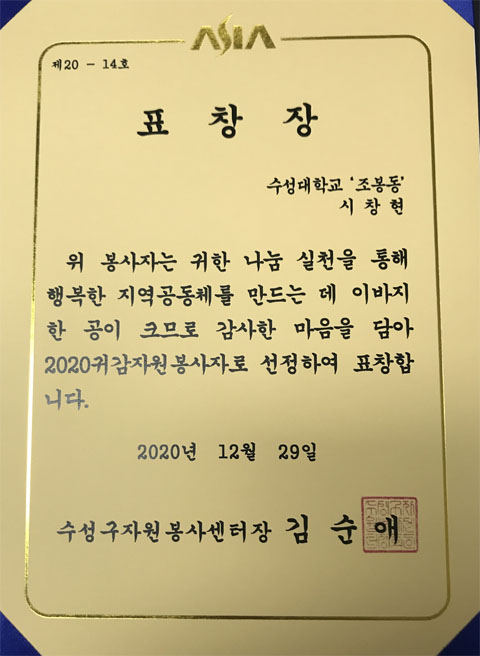 ASIA
제20 - 14호
표 창 장
수성대학교 '조봉동'
시 창 현
위 봉사자는 귀한 나눔 실천을 통해
행복한 지역공동체를 만드는 데 이바지
한 공이 크므로 감사한 마음을 담아
2020귀감자원봉사자로 선정하여 표창합
니다.
2020년 12월 29일
수성구자원봉사센터장 김 순 애